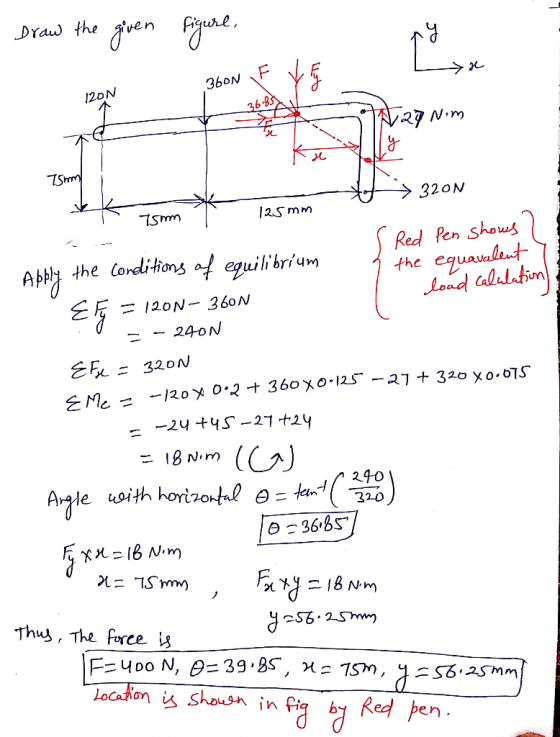 Draw the given figure.
y
x
120N
360N
F
Fy
36.85
Fx
27 N·m
y
x
75mm
320N
75mm
125mm
Red Pen shows
the equavalent
load calulation
Apply the conditions of equilibrium
ΣFy = 120N - 360N
= - 240N
ΣFx = 320N
ΣMc = -120 × 0.2 + 360 × 0.125 - 27 + 320 × 0.075
= -24 + 45 - 27 + 24
= 18 N·m (↺)
Angle with horizontal θ = tan⁻¹(240/320)
θ = 36.85
Fy × x = 18 N·m
x = 75mm , Fx × y = 18 N·m
y = 56.25mm
Thus, The force is
F = 400 N, θ = 39.85, x = 75m, y = 56.25mm
Location is shown in fig by Red pen.